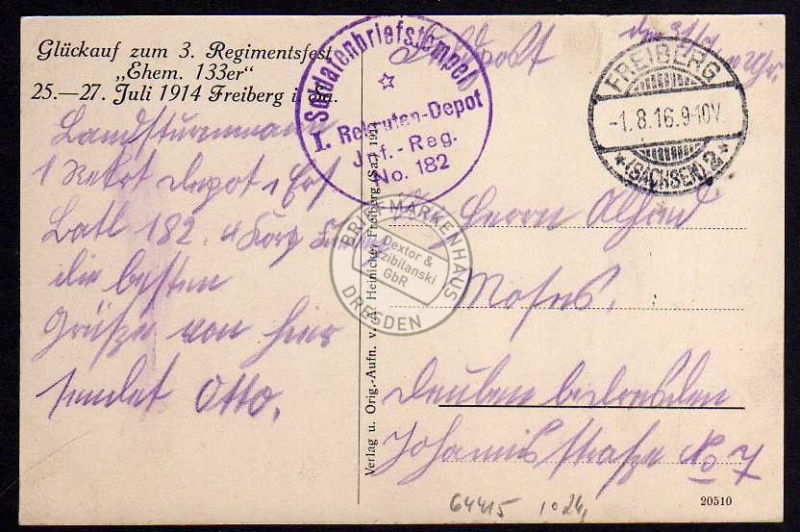 Glückauf zum 3. Regimentsfest
„Ehem. 133er“
25.—27. Juli 1914 Freiberg i. Sa.
Soldatenbriefstempel
I. Rekruten-Depot
Inf.-Reg.
No. 182
Feldpost
FREIBERG
-1.8.16.9-10V.
(SACHSEN) 2
Landsturmmann
1 Rekrt Depot Ers
Batl 182.
die besten
Grüße von hier
sendet Otto.
Herrn Alfred
Moses.
Deuben b. Dresden
Johannisstraße No 7
Verlag u. Orig.-Aufn. v. A. Heinicke, Freiberg (Sa.) 1914
BRIEFMARKENHAUS
Dextor &
GbR
DRESDEN
64415
20510